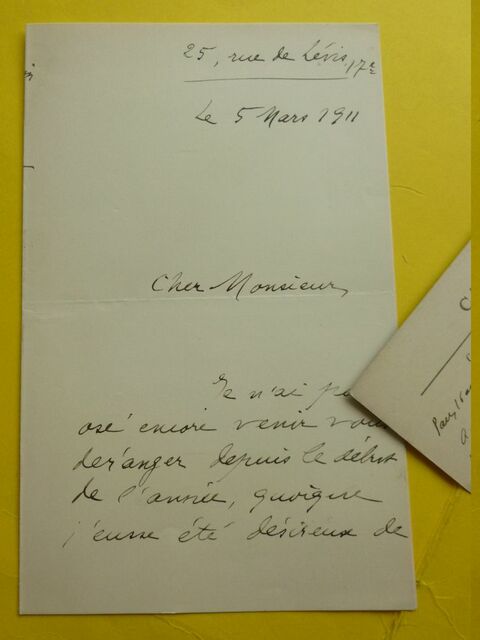 25, rue de Lévis, 17e
Le 5 Mars 1911
Cher Monsieur,
Je n'ai pa
osé encore venir vous
déranger depuis le début
de l'année, quoique
j'eusse été désireux de